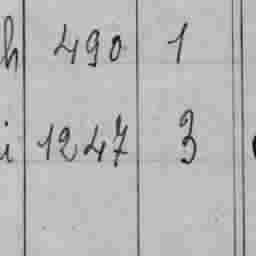 h 490 1
i 1247 3